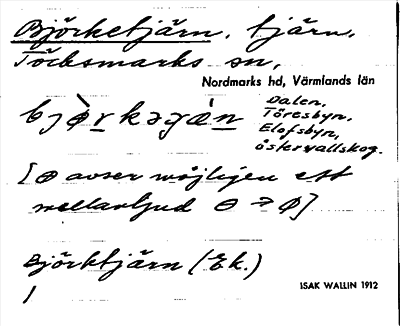 Björketjärn, tjärn,
Töcksmarks sn,
Nordmarks hd, Värmlands län
Dalen,
Töresbyn,
Elofsbyn,
östervallskog.
[ɵ avser möjligen ett
mellanljud ɵ → ø]
Björktjärn (Ek.)
1
ISAK WALLIN 1912